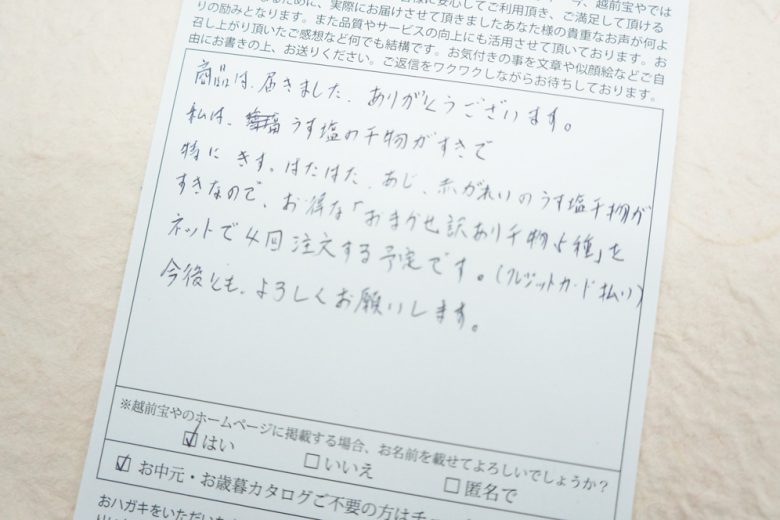 客様に安心してご利用頂き、ご満足して頂ける
ために、実際にお届けさせて頂きましたあなた様の貴重なお声が何よ
りの励みとなります。また品質やサービスの向上にも活用させて頂いております。お
召し上がり頂いたご感想など何でも結構です。お気付きの事を文章や似顔絵などご自
由にお書きの上、お送りください。ご返信をワクワクしながらお待ちしております。
商品は、届きました、ありがとうございます。
私は、うす塩の干物がすきで
特に きす、はたはた、あじ、赤がれいのうす塩干物が
すきなので、お得な「おまかせ訳あり干物5種」を
ネットで4回注文する予定です。(クレジットカード払い)
今後とも、よろしくお願いします。
※越前宝やのホームページに掲載する場合、お名前を載せてよろしいでしょうか?
☑はい □いいえ □匿名で
☑ お中元・お歳暮カタログご不要の方はチェ
おハガキをいただいた